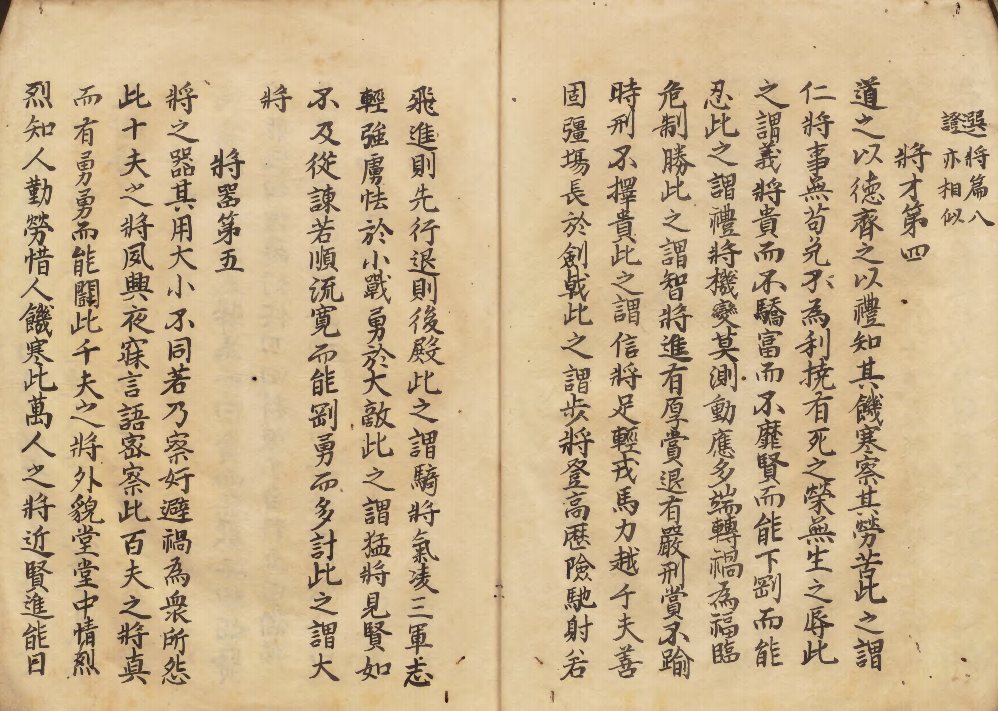 選將篇八
證亦相似
將才第四
道之以德齊之以禮知其饑寒察其勞苦此之謂
仁將事無苟免不為利撓有死之榮無生之辱此
之謂義將貴而不驕富而不靡賢而能下剛而能
忍此之謂禮將機變莫測動應多端轉禍為福臨
危制勝此之謂智將進有厚賞退有嚴刑賞不踰
時刑不擇貴此之謂信將足輕戎馬力越千夫善
固疆場長於劍戟此之謂步將登高歷險馳射若
飛進則先行退則後殿此之謂騎將氣凌三軍志
輕強虜怯於小戰勇於大敵此之謂猛將見賢如
不及從諫若順流寬而能剛勇而多計此之謂大
將
將器第五
將之器其用大小不同若乃察奸避禍為衆所怨
此十夫之將夙興夜寐言語密察此百夫之將真
而有勇勇而能鬪此千夫之將外貌堂堂中情烈
烈知人勤勞惜人饑寒此萬人之將近賢進能日